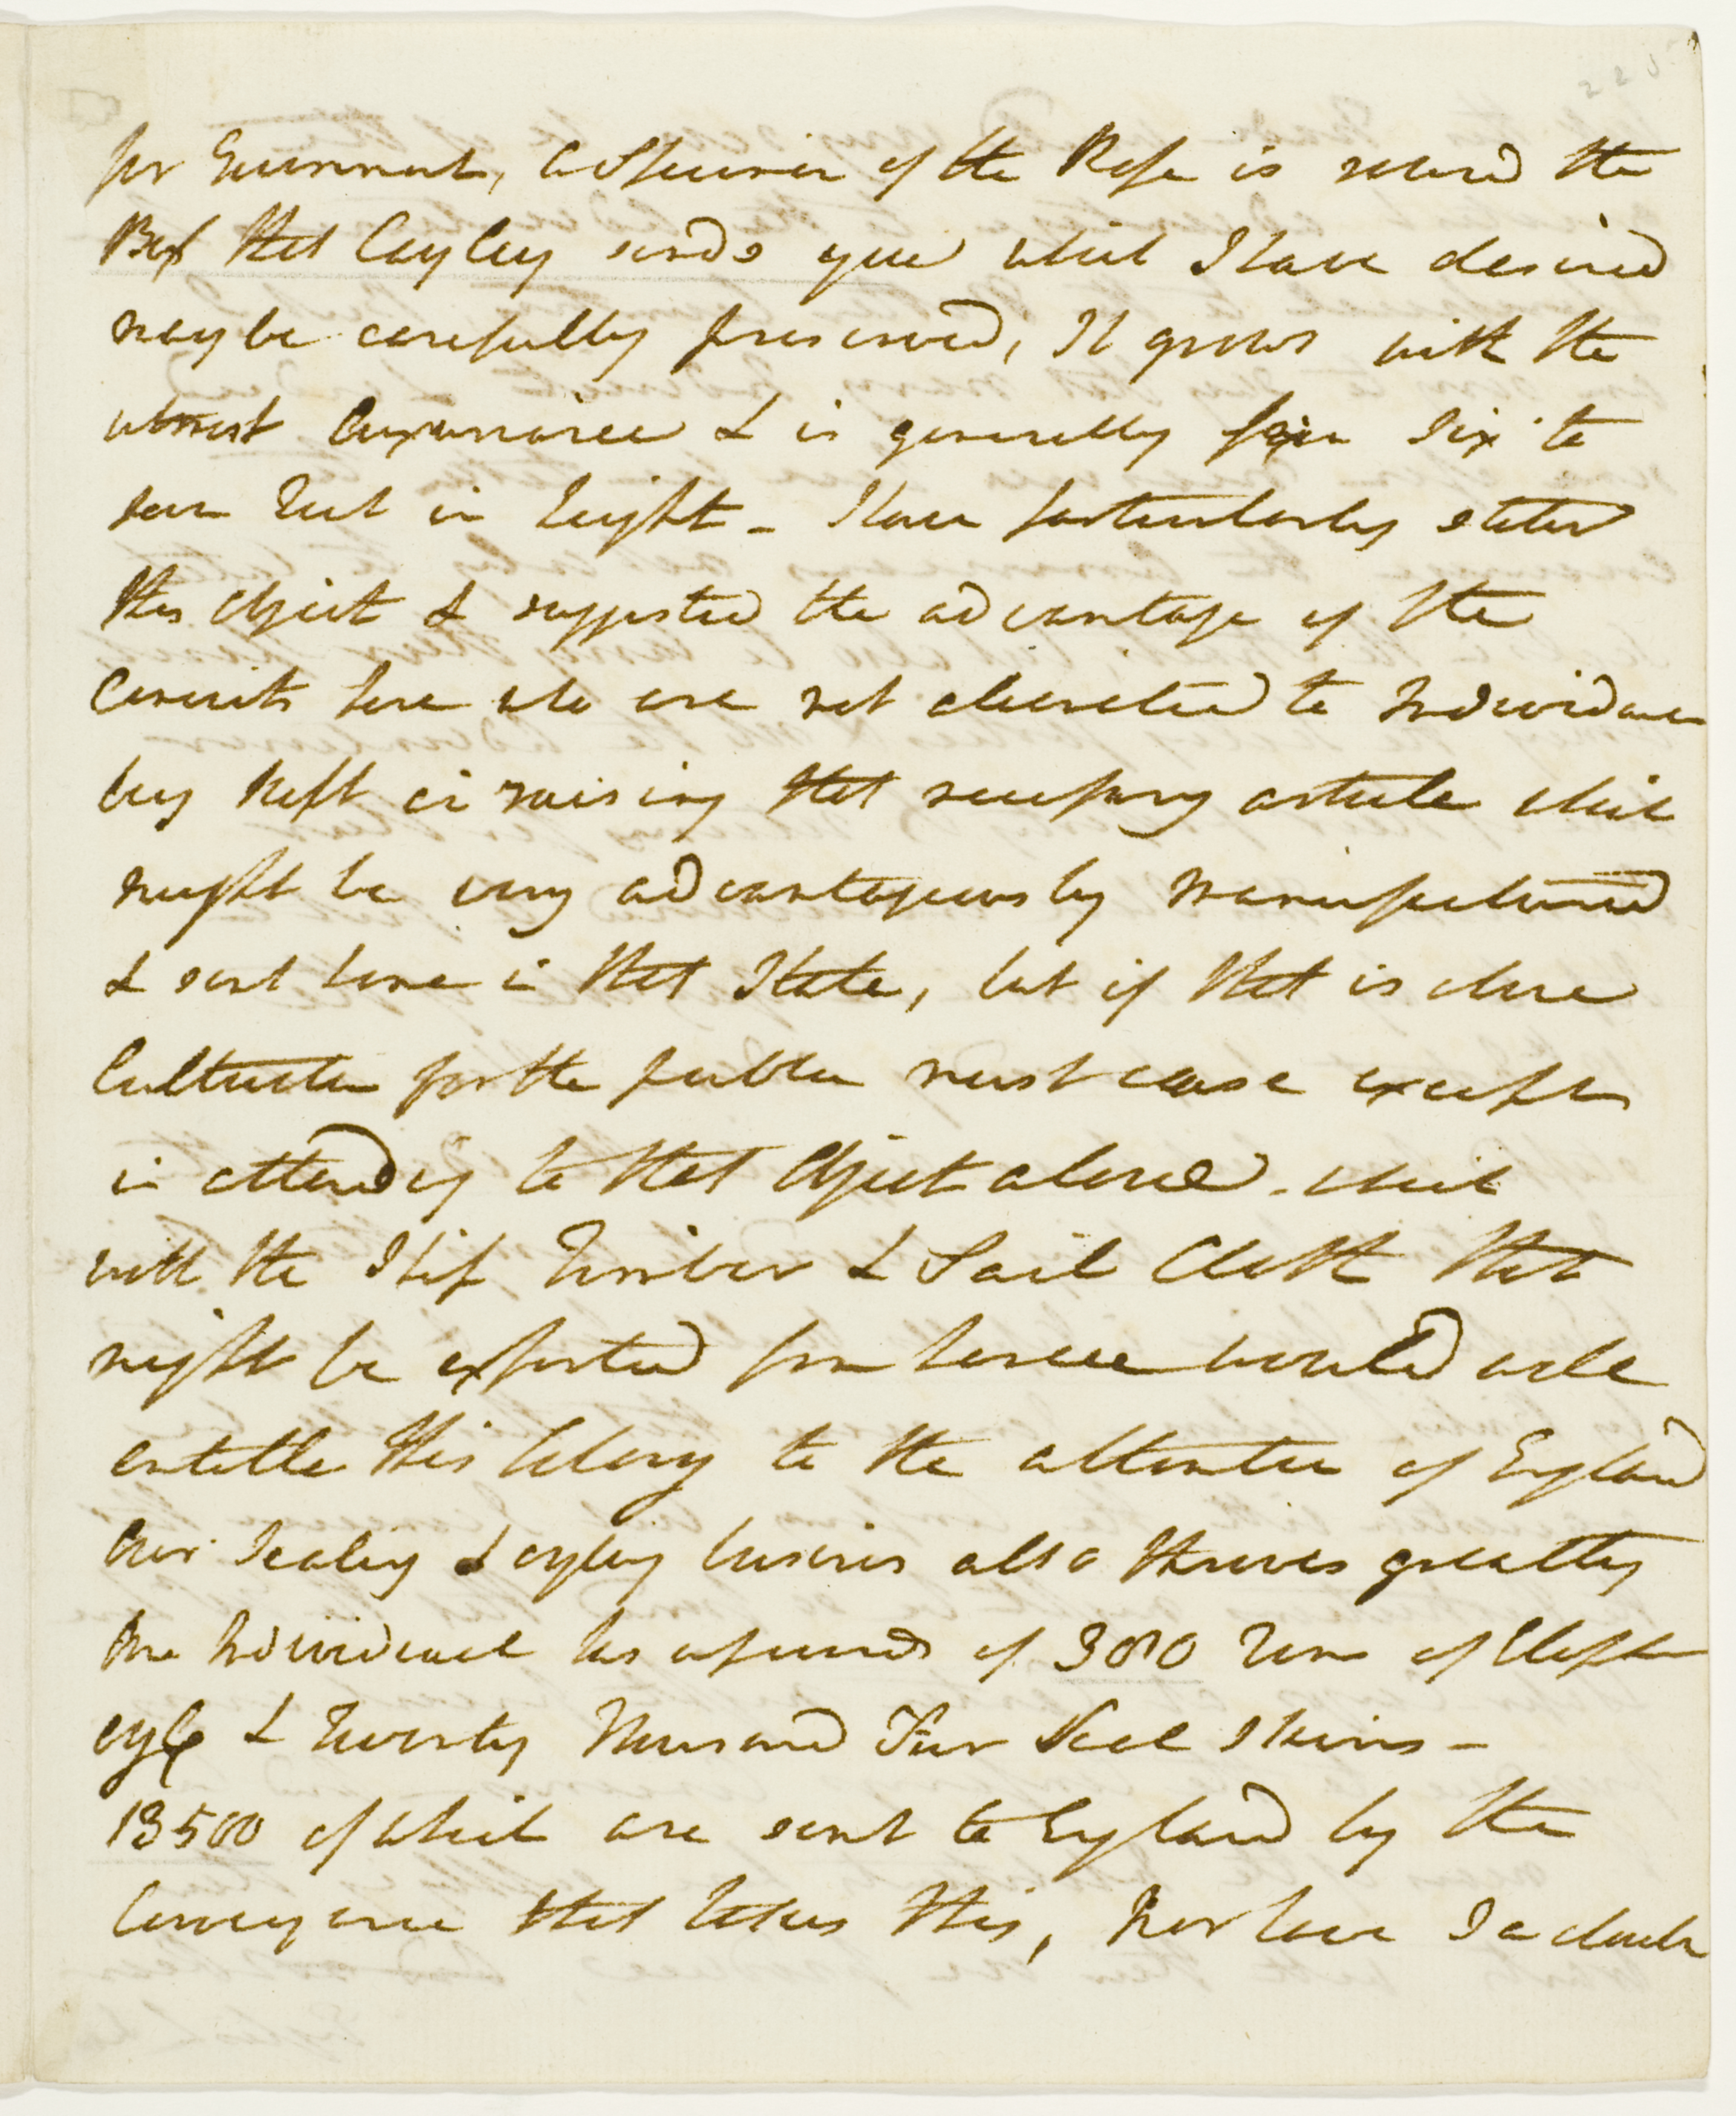 for Government, a Specimen of the Rope is round the
Box that Cayley sends you which I have desired
may be carefully preserved, It grows with the
utmost Luxuriance & is generally from Six to
ten feet in height - I have particularly stated
this object & suggested the advantage of the
Convicts here who are not allotted to Individuals
being kept in raising that necessary article which
might be very advantageously manufactured
& sent home in that State, but if that is done
Cultivation for the public must cease except
in attending to that Object alone - which
with the Ship Timber & Sail Cloth that
might be exported from hence would well
entitle this Colony to the attention of England
Our Sealing & oyling business also thrives greatly
One Individual has upwards of 300 Tons of Eleph
oyle & Twenty Thousand Fur Seal Skins -
13500 of which are sent to England by the
Conveyance that takes this, Nor have I a doubt